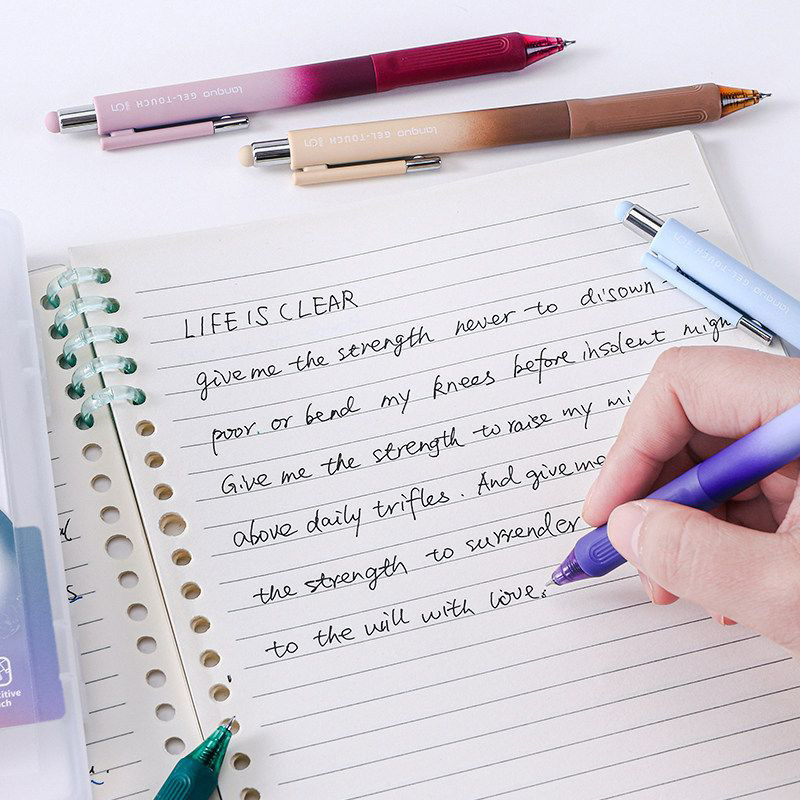 tanguo GEL-TOUCH
tanguo GEL-TOUCH
tanguo GEL-TOUCH
LIFE IS CLEAR
give me the strength never to disown
poor. or bend my knees before insolent migh
Give me the strength to raise my mi
above daily trifles. And give me
the strength to surrender
to the will with love.